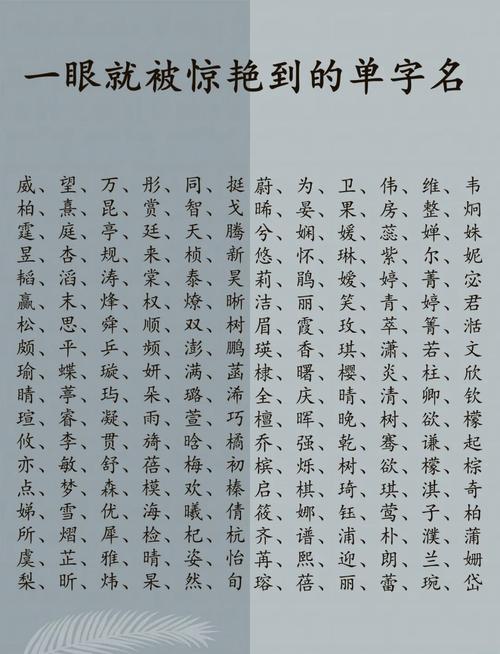 一眼就被惊艳到的单字名
威、望、万、彤、同、挺、蔚、为、卫、伟、维、韦
柏、熹、昆、赏、智、戈、晞、晏、果、房、整、炯
霆、庭、亭、廷、天、腾、兮、娴、媛、蕊、婵、姝
昱、杏、规、来、桢、新、悠、怀、琳、紫、尔、妮
韬、滔、涛、棠、泰、昊、莉、鹃、嫒、婷、菁、宓
赢、末、烽、权、燎、晰、洁、丽、笑、青、婷、君
松、思、舜、顺、双、树、眉、霞、玫、萃、箐、湉
颇、平、乒、频、澎、鹏、瑛、香、琪、潇、若、文
瑜、蝶、璇、妍、满、菡、棣、曙、樱、炎、柱、欣
晴、葶、玙、朵、璐、浠、全、庆、晴、清、卿、钦
瑄、睿、凝、雨、萱、巧、檀、晖、晚、树、欲、檬
攸、李、贯、旖、晗、橘、乔、强、乾、骞、谦、起
亦、敏、舒、蓓、梅、初、槟、烁、树、欲、檬、棕
点、梦、森、模、欢、榛、启、棋、琦、琪、淇、奇
娣、雪、优、海、曦、倩、筱、娜、钰、莺、子、柏
所、熠、犀、检、杞、杭、齐、谱、浦、朴、濮、蒲
虞、芷、雅、晴、姿、怡、苒、熙、迎、朗、兰、姗
梨、昕、炜、杲、然、旬、瑢、蓓、丽、蕾、琬、岱